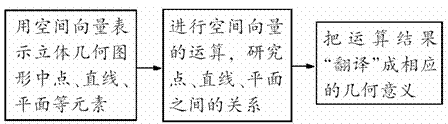 用空间向量表
示立体几何图
形中点、直线、
平面等元素
进行空间向量
的运算，研究
点、直线、平面
之间的关系
把运算结果
“翻译”成相应
的几何意义